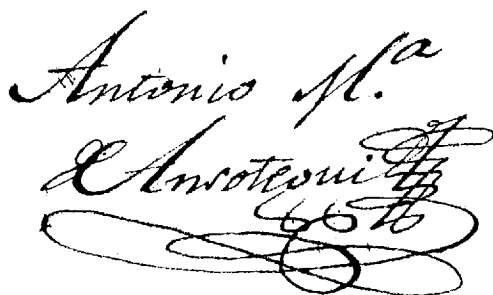 Antonio M.ª
de Ansotegui